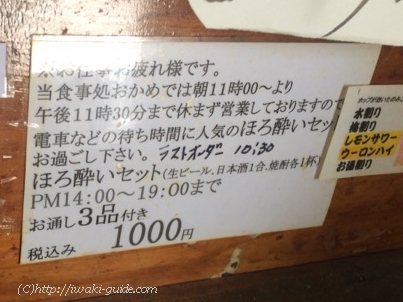 ※お仕事お疲れ様です。
当食事処おかめでは朝11時00~より
午後11時30分まで休まず営業しておりますので
電車などの待ち時間に人気のほろ酔いセット
お過ごし下さい。ラストオーダー 10:30
ほろ酔いセット(生ビール、日本酒1合、焼酎各1杯)
PM14:00~19:00まで
お通し3品付き
税込み 1000円
水割り
梅割り
レモンサワー
ウーロンハイ
お湯割り
(C)http://iwaki-guide.com/